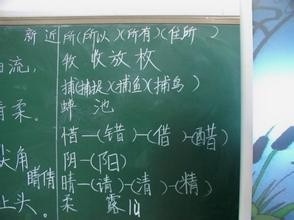 新近所(所以)(所有)(住所)
流, 牧 收放枚
捕(捕捉)(捕鱼)(捕鸟)
柔。 池
惜—(错)—(借)—(醋)
尖角 阴—(阳)
睛倩 晴—(请)—(清)—(精)
上头。 柔 露 14